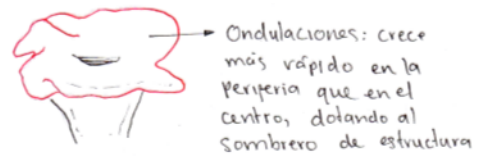 Ondulaciones: crece
más rápido en la
periferia que en el
centro, dotando al
sombrero de estructura